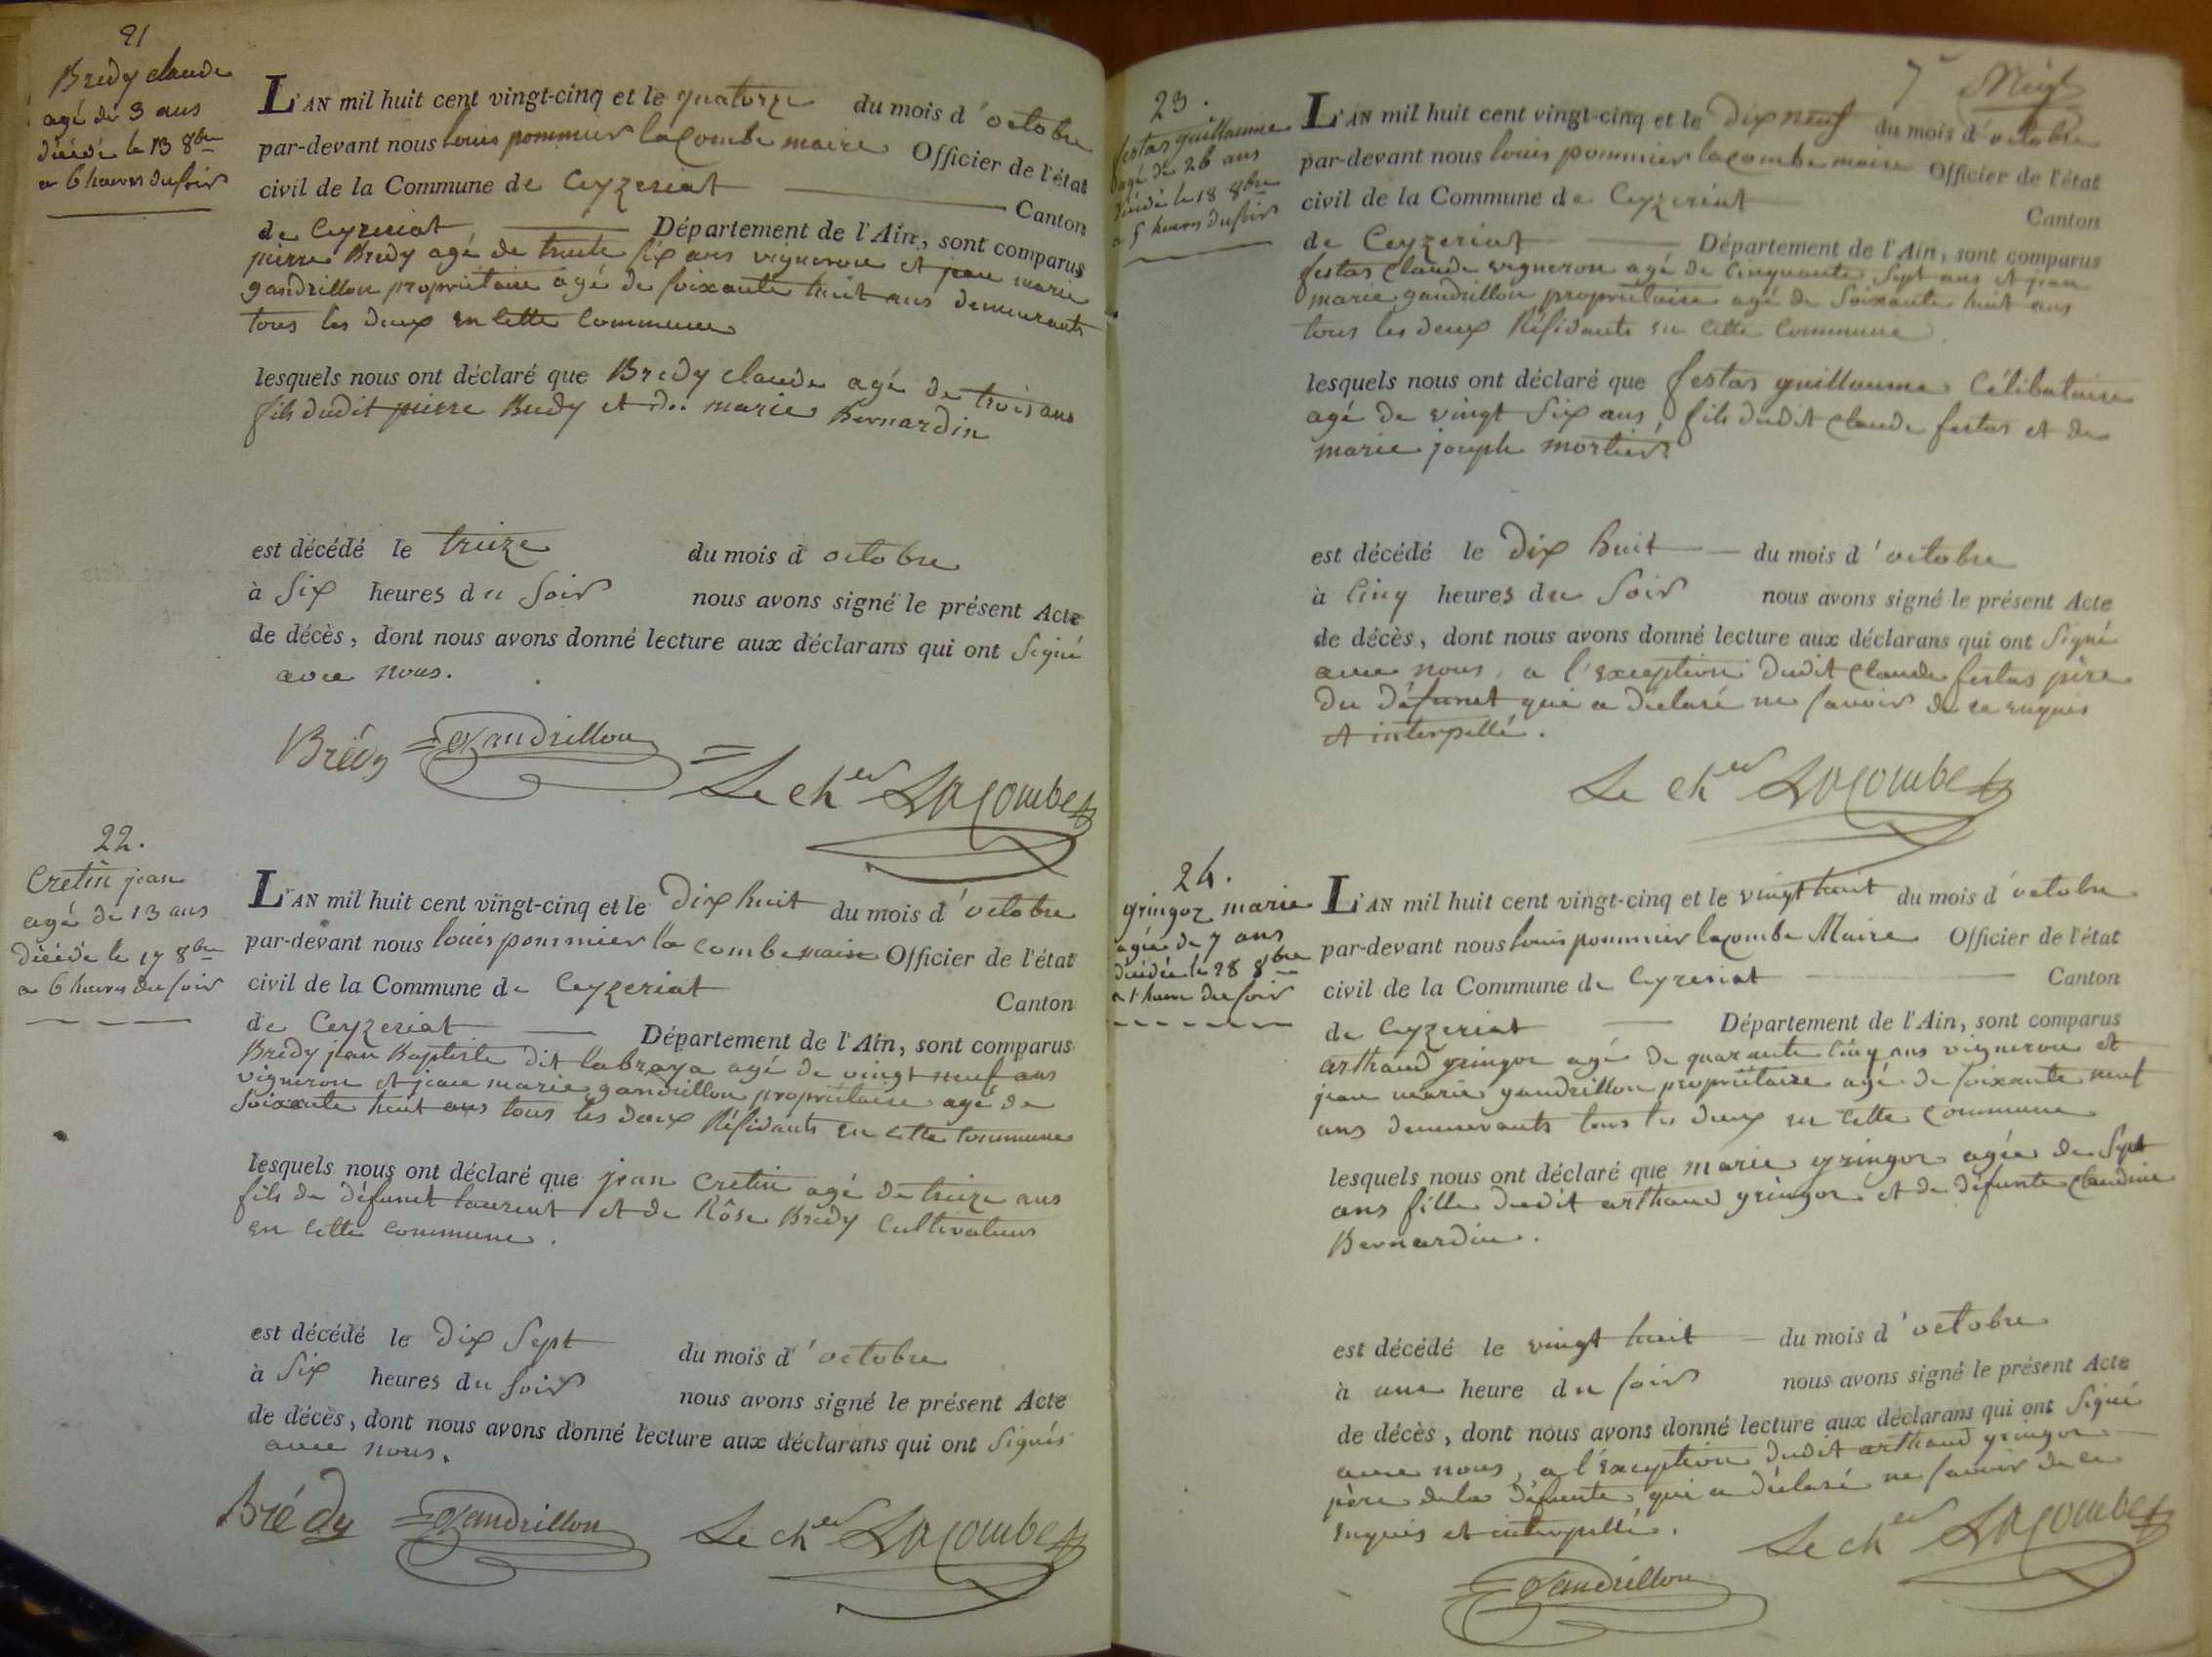 21
Bredy claude
agé de 3 ans
décédé le 13 8bre
a 6 heures du soir
L'AN mil huit cent vingt-cinq et le quatorze du mois d'octobre
par-devant nous louis pommier lacombe maire Officier de l'état
civil de la Commune de Ceyzeriat Canton
de Ceyzeriat Département de l'Ain, sont comparus
pierre Bredy agé de trente six ans vigneron et jean marie
gandrillon propriétaire agé de soixante huit ans demeurants
tous les deux en cette commune
lesquels nous ont déclaré que Bredy claude agé de trois ans
fils dudit pierre Bredy et de marie Bernardin
est décédé le treize du mois d'octobre
à six heures du soir nous avons signé le présent Acte
de décès, dont nous avons donné lecture aux déclarans qui ont signé
avec nous.
Brédy Gandrillon
Le cher Lacombe
22.
Cretin jean
agé de 13 ans
décédé le 17 8bre
a 6 heures du soir
L'AN mil huit cent vingt-cinq et le dix huit du mois d'octobre
par-devant nous louis pommier la combe maire Officier de l'état
civil de la Commune de Ceyzeriat Canton
de Ceyzeriat Département de l'Ain, sont comparus
Bredy jean Baptiste dit labraya agé de vingt neuf ans
vigneron et jean marie gandrillon propriétaire agé de
soixante huit ans tous les deux Résidants en cette commune
lesquels nous ont déclaré que jean Cretin agé de treize ans
fils de défunct laurent et de Rôse Bredy cultivateurs
en cette commune.
est décédé le dix sept du mois d'octobre
à six heures du soir nous avons signé le présent Acte
de décès, dont nous avons donné lecture aux déclarans qui ont signés
avec nous.
Brédy Gandrillon Le cher Lacombe
7e
23.
festas guillaume
agé de 26 ans
décédé le 18 8bre
a 5 heures du soir
L'AN mil huit cent vingt-cinq et le dix neuf du mois d'octobre
par-devant nous louis pommier lacombe maire Officier de l'état
civil de la Commune de Ceyzeriat Canton
de Ceyzeriat Département de l'Ain, sont comparus
festas claude vigneron agé de cinquante sept ans et jean
marie gandrillon propriétaire agé de soixante huit ans
tous les deux Résidants en cette commune
lesquels nous ont déclaré que festas guillaume célibataire
agé de vingt six ans, fils dudit claude festas et de
marie joseph mortier
est décédé le dix huit du mois d'octobre
à cinq heures du soir nous avons signé le présent Acte
de décès, dont nous avons donné lecture aux déclarans qui ont signé
avec nous, a l'exception dudit claude festas père
du défunct qui a déclaré ne savoir de ce enquis
et interpellé.
Le cher Lacombe
24.
gringoz marie
agée de 7 ans
décédée le 28 8bre
a 1 heure du soir
L'AN mil huit cent vingt-cinq et le vingt huit du mois d'octobre
par-devant nous louis pommier lacombe Maire Officier de l'état
civil de la Commune de Ceyzeriat Canton
de Ceyzeriat Département de l'Ain, sont comparus
arthaud gringoz agé de quarante cinq ans vigneron et
jean marie gandrillon propriétaire agé de soixante neuf
ans demeurants tous les deux en cette commune
lesquels nous ont déclaré que marie gringoz agée de sept
ans fille dudit arthaud gringoz et de défunte claudine
Bernardin.
est décédé le vingt huit du mois d'octobre
à une heure du soir nous avons signé le présent Acte
de décès, dont nous avons donné lecture aux déclarans qui ont signé
avec nous, a l'exception dudit arthaud gringoz
père de la défunte qui a déclaré ne savoir de ce
enquis et interpellé.
Le cher Lacombe
Gandrillon